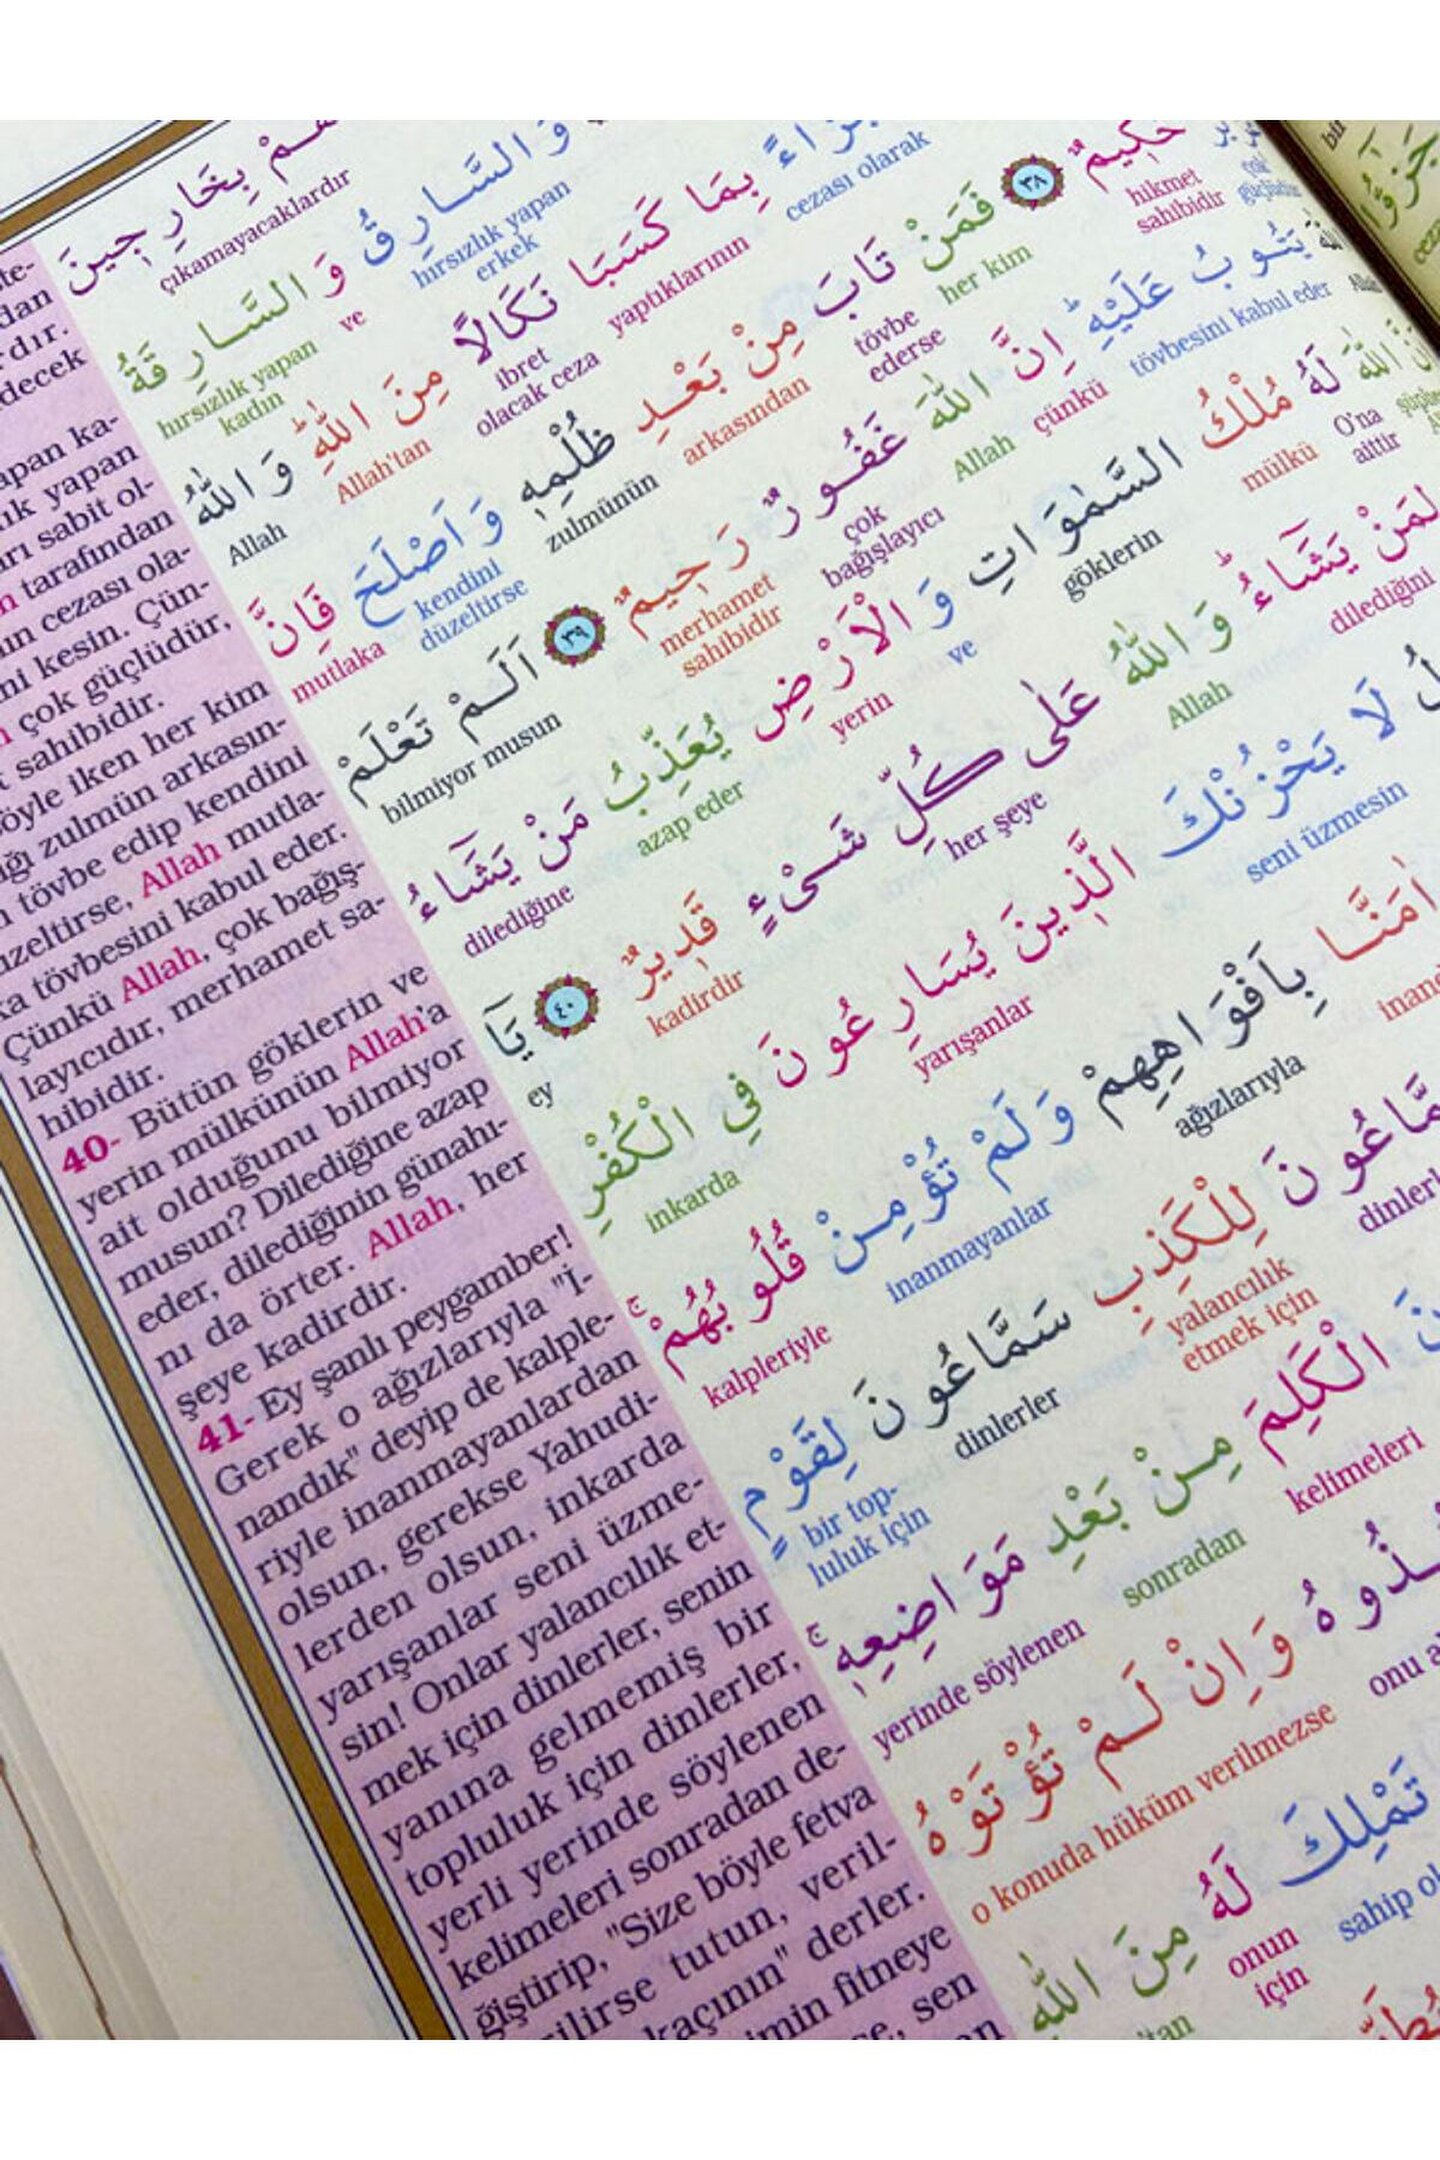 apan ka-
ık yapan
arı sabit ol-
tarafından
ın cezası ola-
ni kesin. Çün-
çok güçlüdür,
sahibidir.
öyle iken her kim
ğı zulmün arkasın-
tövbe edip kendini
üzeltirse, Allah mutla-
ka tövbesini kabul eder.
Çünkü Allah, çok bağış-
layıcıdır, merhamet sa-
hibidir.
40- Bütün göklerin ve
yerin mülkünün Allah'a
ait olduğunu bilmiyor
musun? Dilediğine azap
eder, dilediğinin günahı-
nı da örter. Allah, her
şeye kadirdir.
41- Ey şanlı peygamber!
Gerek o ağızlarıyla "İ-
nandık" deyip de kalple-
riyle inanmayanlardan
olsun, gerekse Yahudi-
lerden olsun, inkarda
yarışanlar seni üzme-
sin! Onlar yalancılık et-
mek için dinlerler, senin
yanına gelmemiş bir
topluluk için dinlerler,
yerli yerinde söylenen
kelimeleri sonradan de-
ğiştirip, "Size böyle fetva
ilirse tutun, veril-
kaçının" derler.
imin fitneye
se, sen
بِخَارِجينَ
çıkamayacaklardır
وَالسَّارِقُ وَالسَّارِقَةُ
hırsızlık yapan erkek ve hırsızlık yapan kadın
جَزَاءً بِمَا كَسَبَا نَكَالًا مِنَ اللّٰهِ وَاللّٰهُ
cezası olarak yaptıklarının ibret olacak ceza Allah'tan Allah
حَكيمٌ ٣٨ فَمَنْ تَابَ مِنْ بَعْدِ ظُلْمِهٖ وَاَصْلَحَ فَاِنَّ
hikmet sahibidir her kim tövbe ederse arkasından zulmünün kendini düzeltirse mutlaka
اللّٰهَ يَتُوبُ عَلَيْهِ اِنَّ اللّٰهَ غَفُورٌ رَحيمٌ ٣٩ اَلَمْ تَعْلَمْ
Allah tövbesini kabul eder çünkü Allah çok bağışlayıcı merhamet sahibidir bilmiyor musun
اللّٰهَ لَهُ مُلْكُ السَّمٰوَاتِ وَالْاَرْضِ يُعَذِّبُ مَنْ يَشَاءُ
O'na aittir mülkü göklerin ve yerin azap eder dilediğine
لِمَنْ يَشَاءُ وَاللّٰهُ عَلٰى كُلِّ شَىْءٍ قَديرٌ ٤٠ يَا
dilediğini Allah her şeye kadirdir ey
لَا يَحْزُنْكَ الَّذينَ يُسَارِعُونَ فِي الْكُفْرِ
seni üzmesin yarışanlar inkarda
اٰمَنَّا بِاَفْوَاهِهِمْ وَلَمْ تُؤْمِنْ قُلُوبُهُمْ
ağızlarıyla inanmayanlar kalpleriyle
سَمَّاعُونَ لِلْكَذِبِ سَمَّاعُونَ لِقَوْمٍ
yalancılık etmek için dinlerler bir topluluk için
الْكَلِمَ مِنْ بَعْدِ مَوَاضِعِهٖ
kelimeleri sonradan yerinde söylenen
وَاِنْ لَمْ تُؤْتَوْهُ
o konuda hüküm verilmezse
تَمْلِكَ لَهُ مِنَ اللّٰهِ
onun için